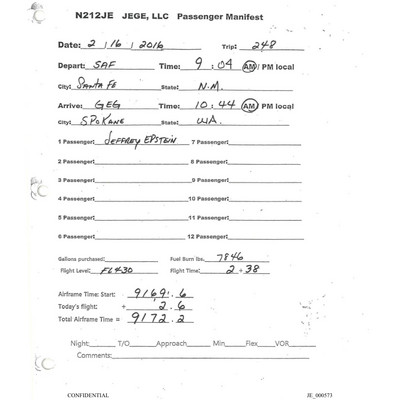 N212JE JEGE, LLC Passenger Manifest
Date: 2 / 16 / 2016 Trip: 248
Depart: SAF Time: 9 : 04 AM / PM local
City: SANTA FE State: N.M.
Arrive: GEG Time: 10 : 44 AM / PM local
City: SPOKANE State: WA.
1 Passenger: JEFFREY EPSTEIN 7 Passenger:
2 Passenger: 8 Passenger:
3 Passenger: 9 Passenger:
4 Passenger: 10 Passenger:
5 Passenger: 11 Passenger:
6 Passenger: 12 Passenger:
Gallons purchased: Fuel Burn lbs. 7846
Flight Level: FL430 Flight Time: 2 + 38
Airframe Time: Start: 9169.6
Today's flight: + 2.6
Total Airframe Time = 9172.2
Night: T/O Approach Min Flex VOR
Comments:
CONFIDENTIAL JE_000573